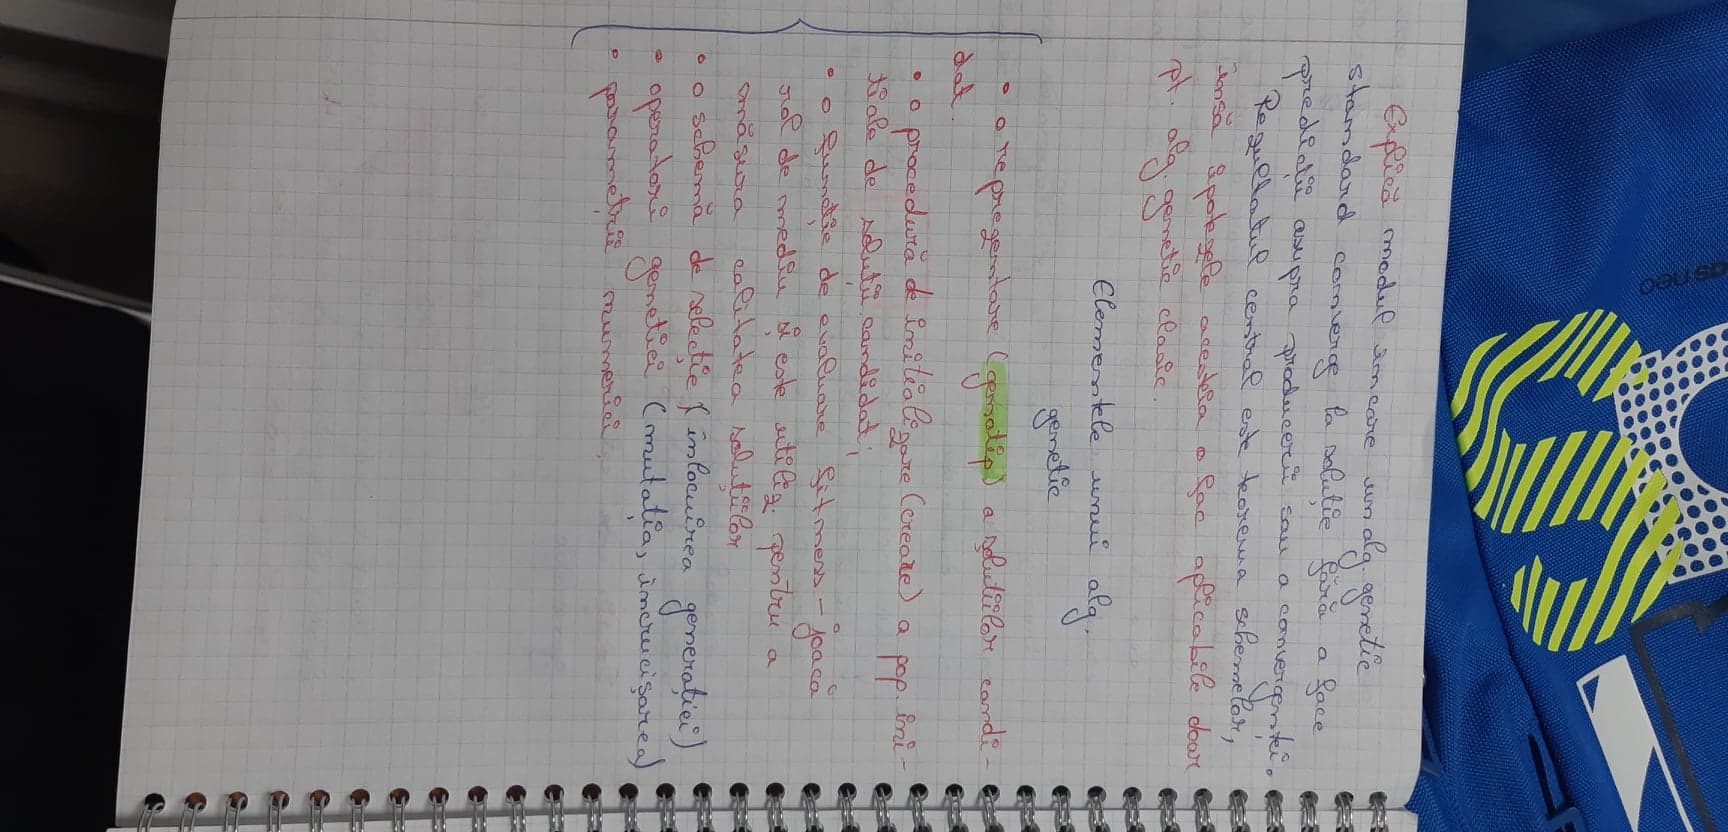 asneo
Explică modul în care un alg. genetic
standard converge la soluție fără a face
predicții asupra producerii sau a convergenței.
Rezultatul central este teorema schemelor,
însă ipotezele acesteia o fac aplicabile doar
pt. alg. genetic clasic.
Elementele unui alg.
genetic
• o reprezentare (genotip) a soluțiilor candi-
dat.
• o procedură de inițializare (creare) a pop. ini-
țiale de soluții candidat;
• o funcție de evaluare fitness - joacă
rol de mediu și este utiliz. pentru a
măsura calitatea soluțiilor
• o schemă de selecție (înlocuirea generației)
• operatori genetici (mutația, încrucișarea)
• parametrii numerici.